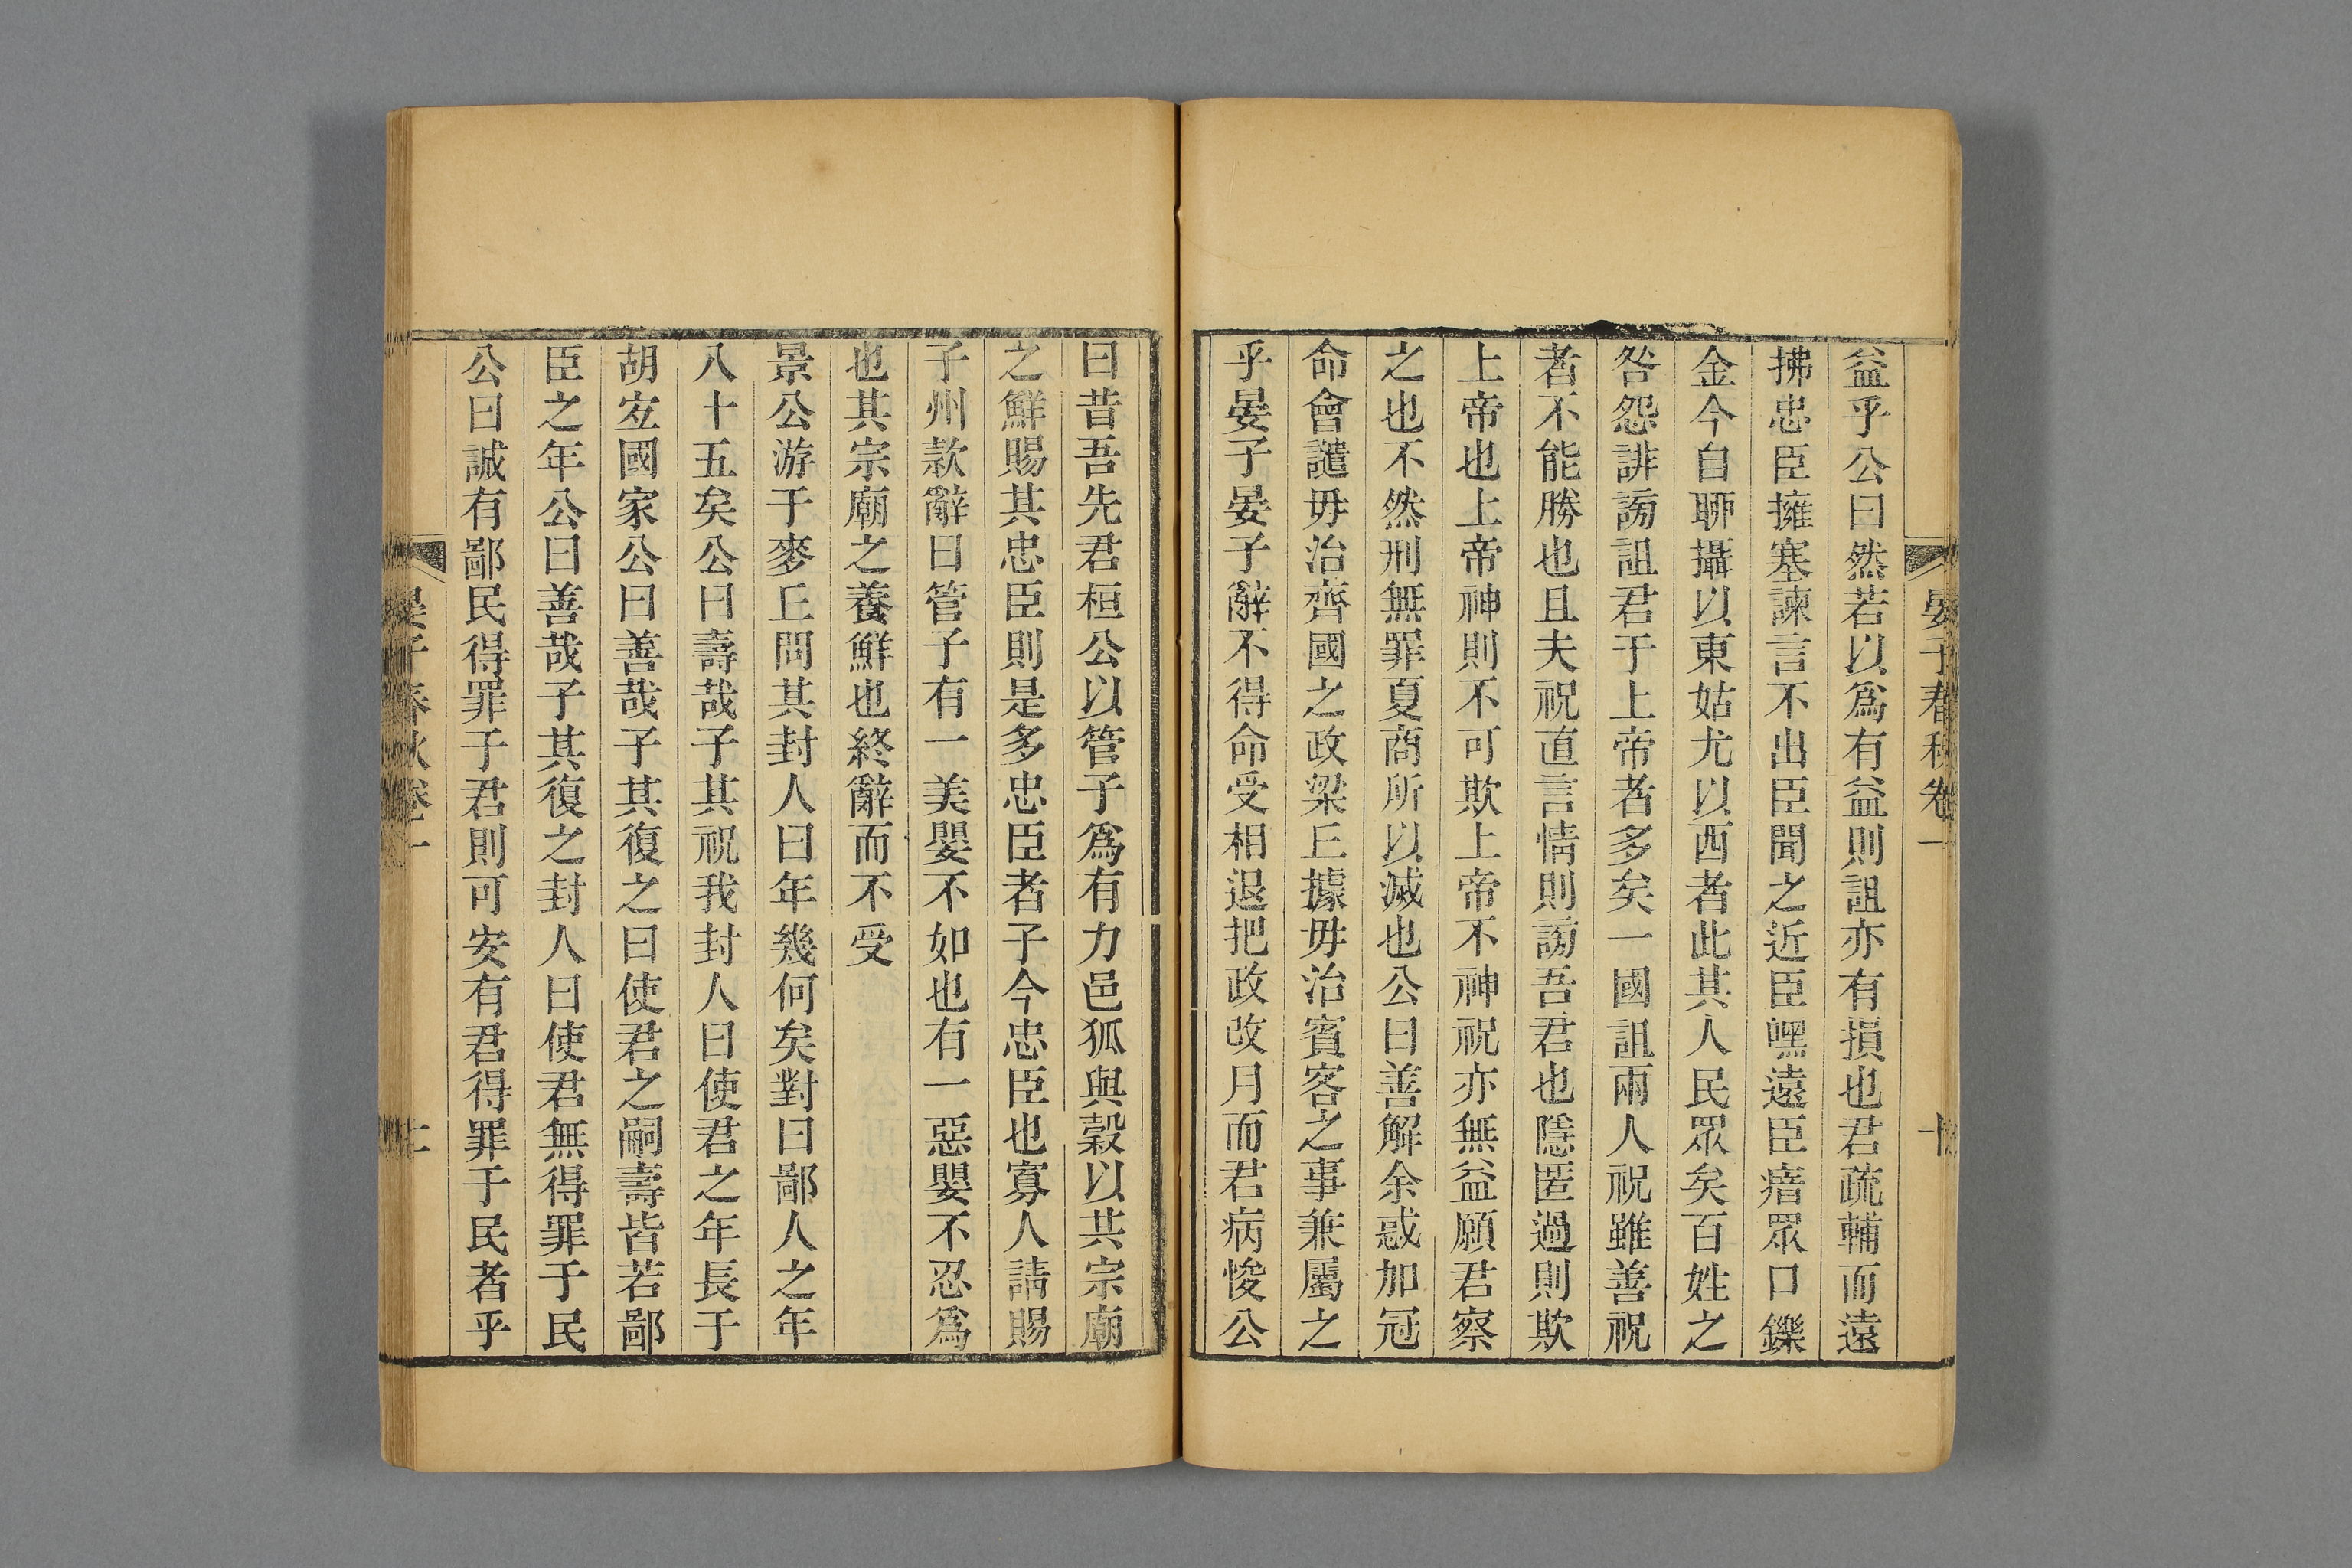 晏子春秋卷一 十
益乎公曰然若以爲有益則詛亦有損也君疏輔而遠
拂忠臣擁塞諫言不出臣聞之近臣嘿遠臣瘖眾口鑠
金今自聊攝以東姑尤以西者此其人民眾矣百姓之
咎怨誹謗詛君于上帝者多矣一國詛兩人祝雖善祝
者不能勝也且夫祝直言情則謗吾君也隱匿過則欺
上帝也上帝神則不可欺上帝不神祝亦無益願君察
之也不然刑無罪夏商所以滅也公曰善解余惑加冠
命會譴毋治齊國之政梁丘據毋治賓客之事兼屬之
乎晏子晏子辭不得命受相退把政改月而君病悛公
曰昔吾先君桓公以管子爲有力邑狐與穀以共宗廟
之鮮賜其忠臣則是多忠臣者子今忠臣也寡人請賜
子州款辭曰管子有一美嬰不如也有一惡嬰不忍爲
也其宗廟之養鮮也終辭而不受
景公游于麥丘問其封人曰年幾何矣對曰鄙人之年
八十五矣公曰壽哉子其祝我封人曰使君之年長于
胡宜國家公曰善哉子其復之曰使君之嗣壽皆若鄙
臣之年公曰善哉子其復之封人曰使君無得罪于民
公曰誠有鄙民得罪于君則可安有君得罪于民者乎
晏子春秋卷一